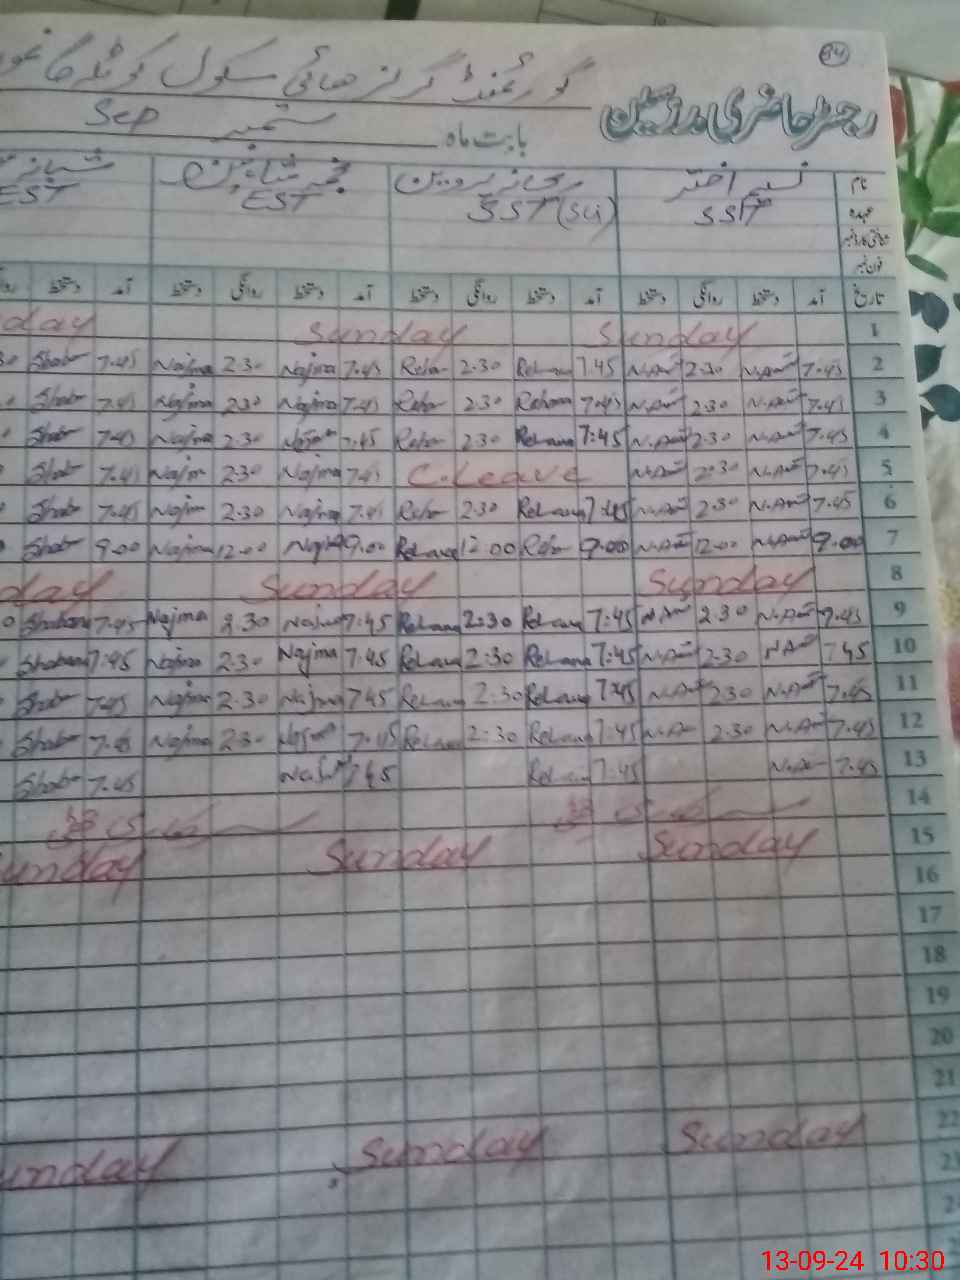 94
رجسٹر حاضری مدرسین
گورنمنٹ گرلز ہائی سکول
بابت ماہ ستمبر Sep
نام نسیم اختر ریحانہ پروین نجمہ شاہین
عہدہ SST SST (Sci) EST EST
شناختی کارڈ نمبر
فون نمبر
تاریخ آمد دستخط روانگی دستخط آمد دستخط روانگی دستخط آمد دستخط روانگی دستخط آمد دستخط
1 Sunday Sunday day
2 7.45 N.A 2.30 N.A 7.45 Rehana 2.30 Reha 7.45 Najma 2.30 Najma 7.45
3 7.45 N.A 2.30 N.A 7.45 Rehana 2.30 Reha 7.45 Najma 2.30 Najma 7.45
4 7.45 N.A 2.30 N.A 7:45 Rehana 2.30 Reha 7.45 Najma 2.30 Najma 7.45
5 7.45 N.A 2.30 N.A C.Leave 7.45 Najma 2.30 Najm 7.45
6 7.45 N.A 2.30 N.A 7.45 Rehana 2.30 Reha 7.45 Najma 2.30 Najm 7.45
7 9.00 N.A 12.00 N.A 9.00 Reha 12.00 Rehana 9.00 Najma 12.00 Najma 9.00
8 Sunday Sunday day
9 7.45 N.A 2.30 N.A 7:45 Rehana 2:30 Rehana 7.45 Najma 2.30 Najma 7.45 Shabana
10 7.45 N.A 2.30 N.A 7:45 Rehana 2:30 Rehana 7.45 Najma 2.30 Najma 7:45 Shabana
11 7.45 N.A 2.30 N.A 7:45 Rehana 2:30 Rehana 7.45 Najma 2.30 Najma 7.45
12 7.45 N.A 2.30 N.A 7:45 Rehana 2:30 Rehana 7.45 Najma 2.30 Najma 7.45
13 7.45 N.A 7:45 Rehana 7.45 Najma 7.45
14
15 Sunday Sunday unday
16
17
18
19
20
21
22 Sunday Sunday unday
23
13-09-24 10:30